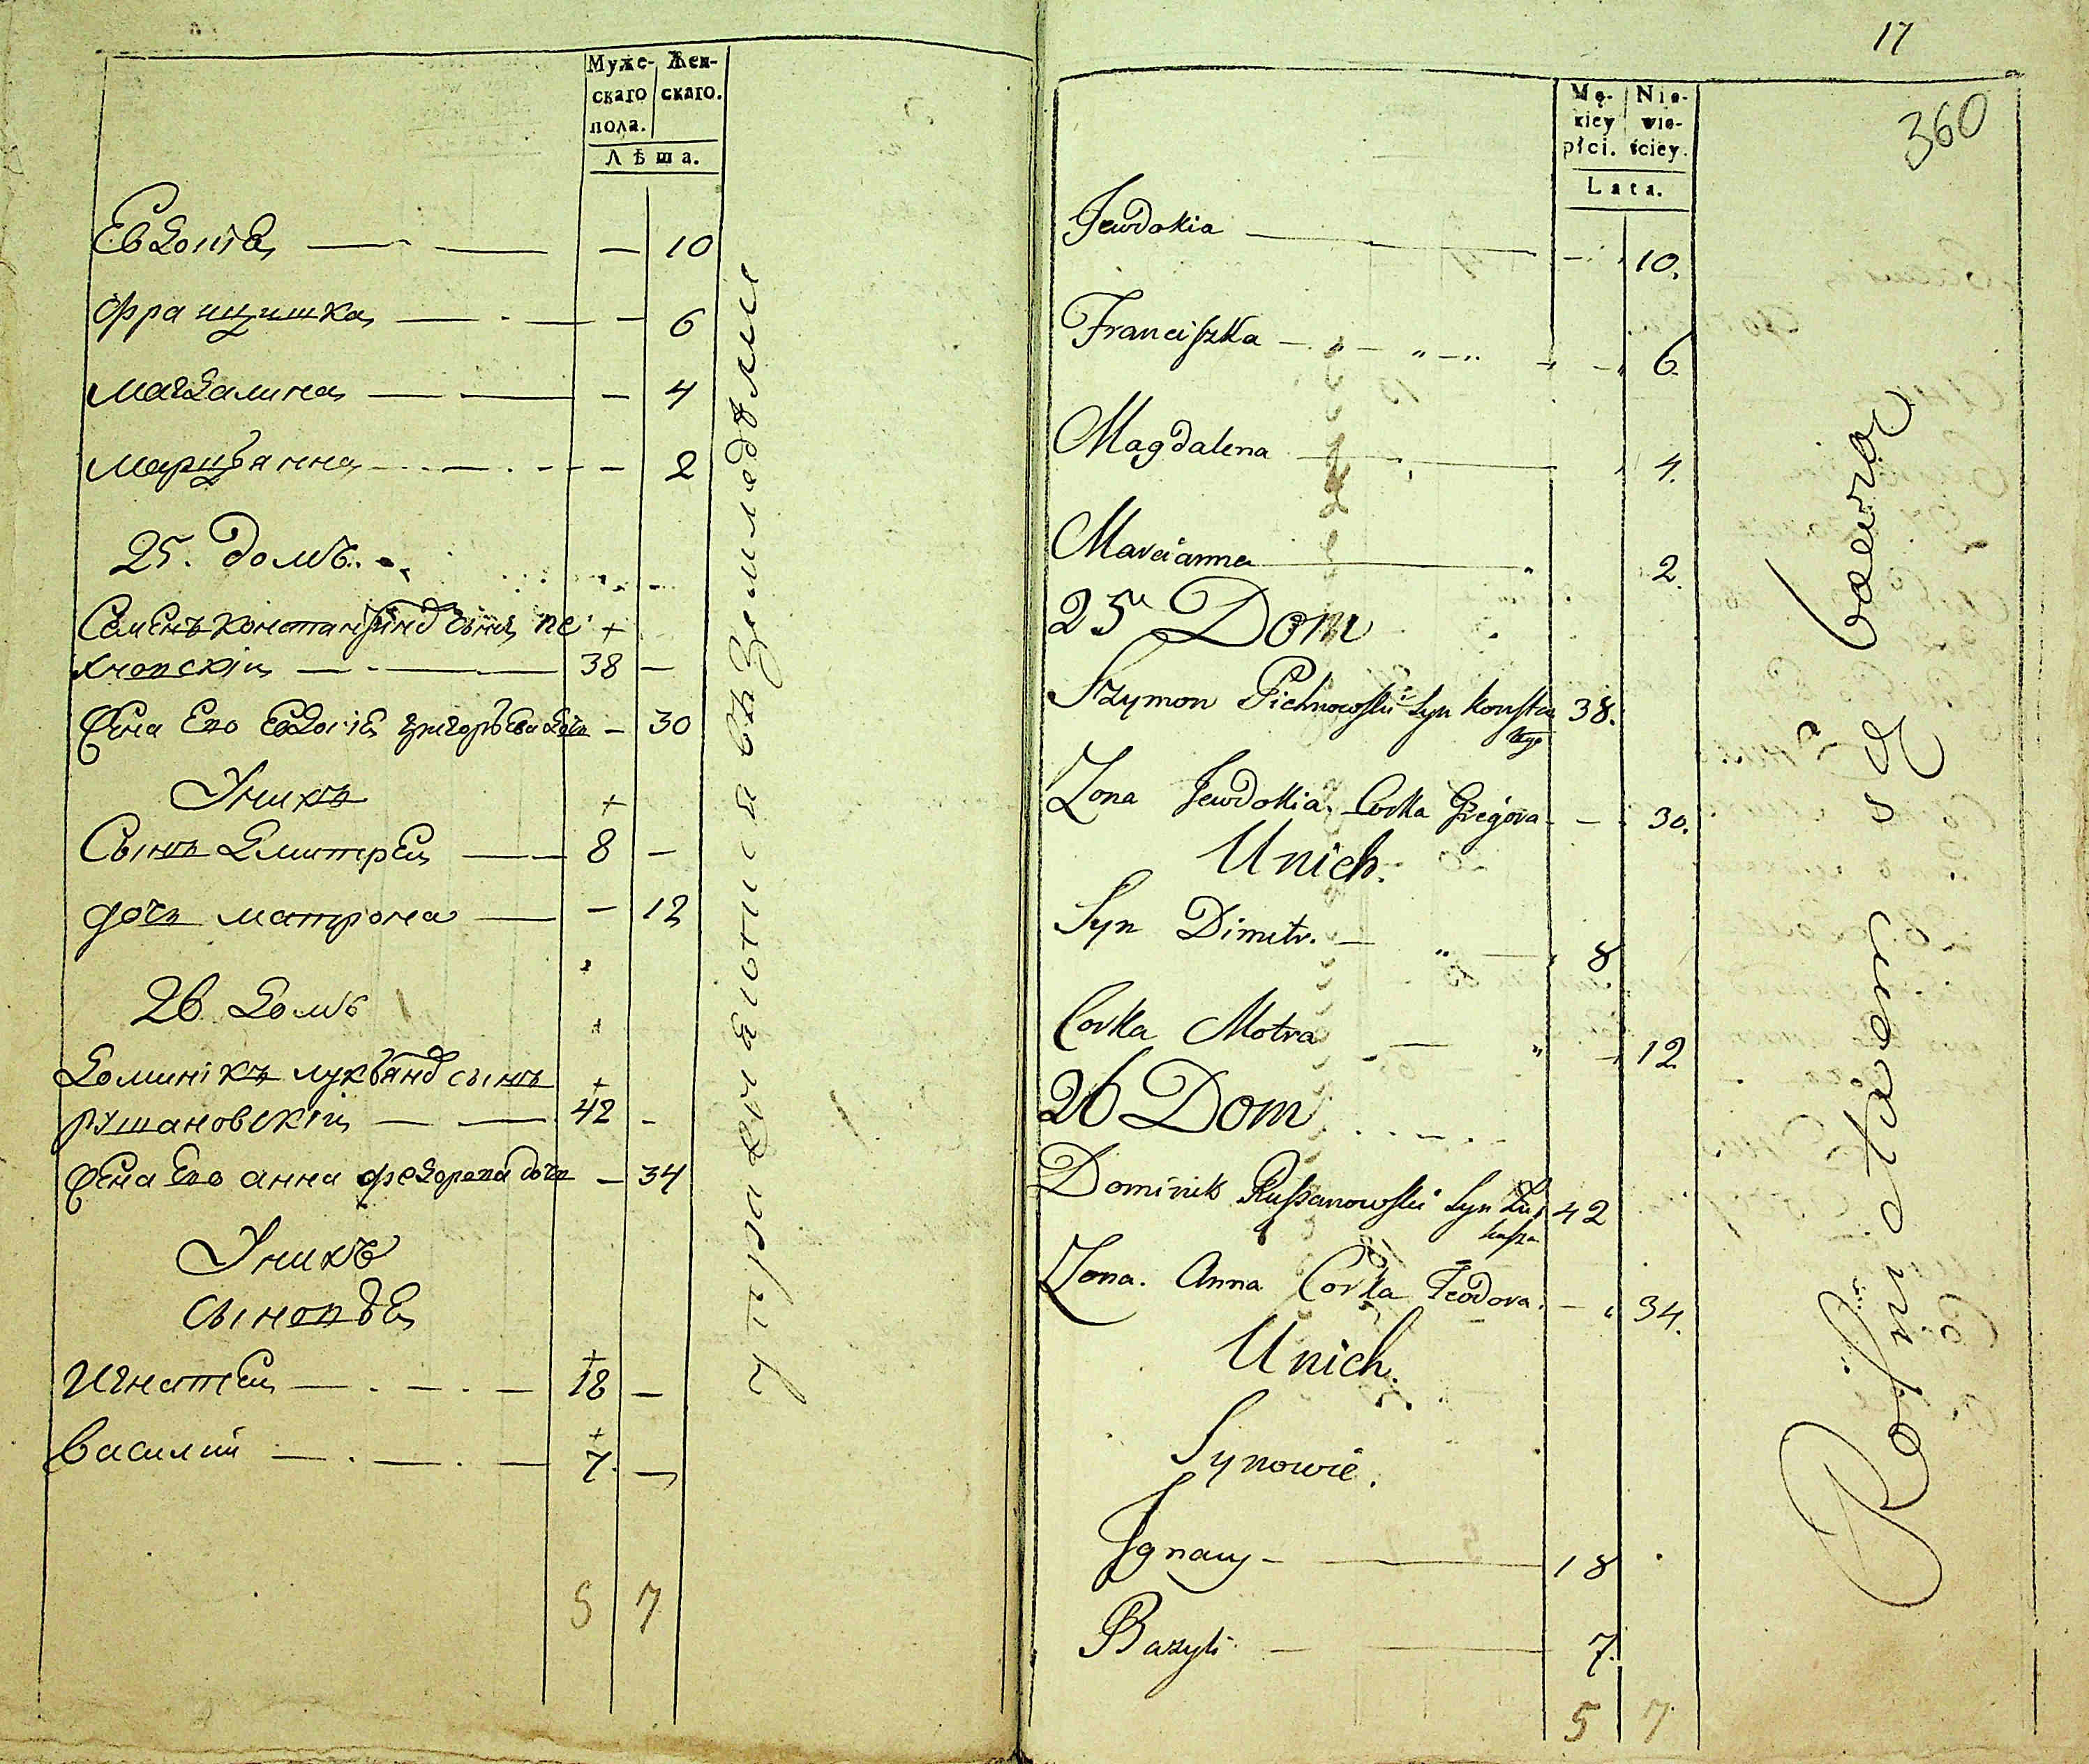 Муже-скаго пола. Жен-скаго.
Лѣта.
Евдокія — — — 10
Францишка — — — 6
Магдалина — — — 4
Марціянна — — — 2
25. домъ.
Семенъ Константинов сынъ Пе
хновскій — — 38 —
Жена Его Евдокія Григорьева дочь — 30
Унихъ
Сынъ Дмитрей — 8 —
Дочь Матрона — — 12
26 домъ
Доминікъ Лукьянов сынъ
Рушановскій — — 42 —
Жена Его Анна Федорова дочь — 34
Унихъ
Сыновѣя
Игнатей — — 18 —
Василий — — 7. —
5 7
упражняются въ Земледѣлии
17
360
Mę-zkiey płci. Nie-wie-ściey.
Lata.
Jewdokia — 10.
Franciszka — 6.
Magdalena — 4.
Marcianna — 2.
25 Dom
Szymon Pichnowski Syn Konstan 38.
tego
Zona Jewdokia Corka Grzegorza — 30.
Unich.
Syn Dimitr. — 8
Corka Motra — 12
26 Dom
Dominik Rußanowski Syn Łu 42
kasza
Zona. Anna Corka Teodora. — 34.
Unich.
Synowie.
Ignacy — 18
Bazyli — 7.
5 7
Rolnictwem się bawiac